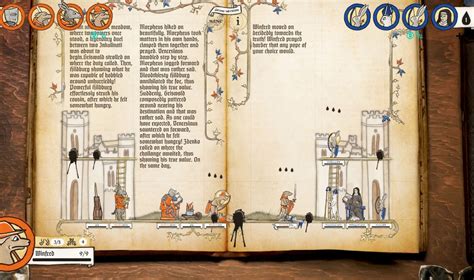 meadow,
where two
once
stood, a legendary duel
between two
was
about to
begin. Griswold strolled
on where the duty called. Then,
Fillsburg showing what he
was capable of hobbled
around unhurriedly!
Powerful Fillsburg
effortlessly
his
cousin, after which he felt
somewhat hungry.
Morpheus hiked on
beautifully. Morpheus took
matters in his own hands,
clasped them together and
prayed. Venceslaus
dawdled step by step.
Morpheus jogged forward
and that was rather sad.
Bloodthirsty Fillsburg
annihilated the foe, thus
showing his true value.
Suddenly, Griswold
pompously pottered
around nearing his
destination and that was
rather sad. As one could
have expected, Venceslaus
sauntered on forward,
after which he felt
somewhat hungry! Zdenko
rolled on where the
challenge awaited, thus
showing his true value. On
the same day,
Winfred moved on
decidedly towards the
truth! Winfred prayed
harder that any pope of
your choice would.
MENU
i
3/3
Winfred
9/9